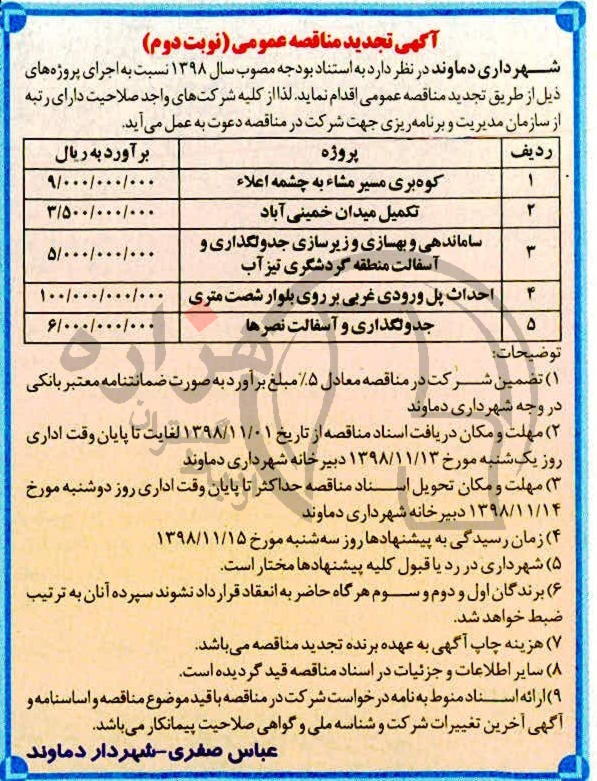 آگهی تجدید مناقصه عمومی (نوبت دوم)
شهرداری دماوند در نظر دارد به استناد بودجه مصوب سال ۱۳۹۸ نسبت به اجرای پروژه‌های
ذیل از طریق تجدید مناقصه عمومی اقدام نماید. لذا از کلیه شرکت‌های واجد صلاحیت دارای رتبه
از سازمان مدیریت و برنامه‌ریزی جهت شرکت در مناقصه دعوت به عمل می‌آید.
ردیف پروژه برآورد به ریال
۱ کوه‌بری مسیر مشاء به چشمه اعلاء ۹/۰۰۰/۰۰۰/۰۰۰
۲ تکمیل میدان خمینی‌آباد ۳/۵۰۰/۰۰۰/۰۰۰
۳ ساماندهی و بهسازی و زیرسازی جدولگذاری و
آسفالت منطقه گردشگری تیزآب ۵/۰۰۰/۰۰۰/۰۰۰
۴ احداث پل ورودی غربی بر روی بلوار شصت متری ۱۰۰/۰۰۰/۰۰۰/۰۰۰
۵ جدولگذاری و آسفالت نصرها ۶/۰۰۰/۰۰۰/۰۰۰
توضیحات:
۱) تضمین شرکت در مناقصه معادل ۵٪ مبلغ برآورد به صورت ضمانتنامه معتبر بانکی
در وجه شهرداری دماوند
۲) مهلت و مکان دریافت اسناد مناقصه از تاریخ ۱۳۹۸/۱۱/۰۱ لغایت تا پایان وقت اداری
روز یک‌شنبه مورخ ۱۳۹۸/۱۱/۱۳ دبیرخانه شهرداری دماوند
۳) مهلت و مکان تحویل اسناد مناقصه حداکثر تا پایان وقت اداری روز دوشنبه مورخ
۱۳۹۸/۱۱/۱۴ دبیرخانه شهرداری دماوند
۴) زمان رسیدگی به پیشنهادها روز سه‌شنبه مورخ ۱۳۹۸/۱۱/۱۵
۵) شهرداری در رد یا قبول کلیه پیشنهادها مختار است.
۶) برندگان اول و دوم و سوم هرگاه حاضر به انعقاد قرارداد نشوند سپرده آنان به ترتیب
ضبط خواهد شد.
۷) هزینه چاپ آگهی به عهده برنده تجدید مناقصه می‌باشد.
۸) سایر اطلاعات و جزئیات در اسناد مناقصه قید گردیده است.
۹) ارائه اسناد منوط به نامه درخواست شرکت در مناقصه با قید موضوع مناقصه و اساسنامه و
آگهی آخرین تغییرات شرکت و شناسه ملی و گواهی صلاحیت پیمانکار می‌باشد.
عباس صفری-شهردار دماوند
هزاره